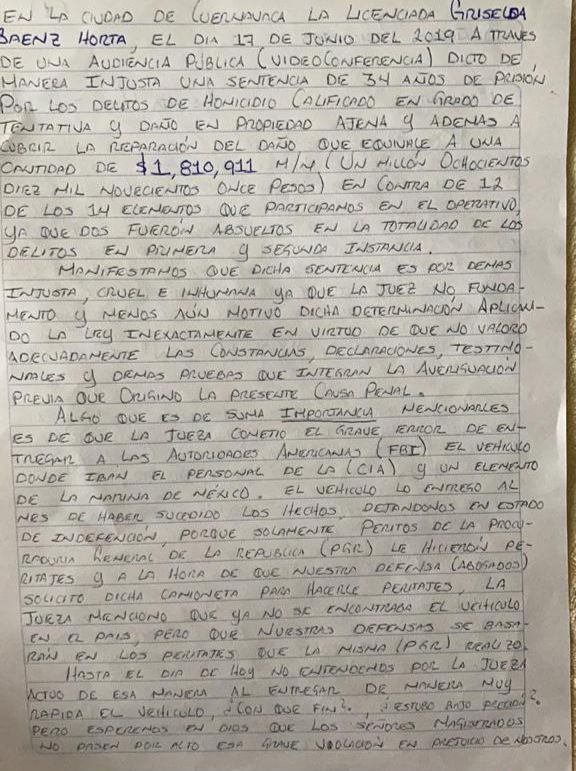 EN LA CIUDAD DE CUERNAVACA LA LICENCIADA GRISELDA
BAENZ HORTA, EL DIA 17 DE JUNIO DEL 2019 A TRAVES
DE UNA AUDIENCIA PUBLICA (VIDEOCONFERENCIA) DICTO DE
MANERA INJUSTA UNA SENTENCIA DE 34 AÑOS DE PRISIÓN
POR LOS DELITOS DE HOMICIDIO CALIFICADO EN GRADO DE
TENTATIVA Y DAÑO EN PROPIEDAD AJENA Y ADEMAS A
CUBRIR LA REPARACIÓN DEL DAÑO QUE EQUIVALE A UNA
CANTIDAD DE $1,810,911 M/N (UN MILLON OCHOCIENTOS
DIEZ MIL NOVECIENTOS ONCE PESOS) EN CONTRA DE 12
DE LOS 14 ELEMENTOS QUE PARTICIPAMOS EN EL OPERATIVO,
YA QUE DOS FUERON ABSUELTOS EN LA TOTALIDAD DE LOS
DELITOS EN PRIMERA Y SEGUNDA INSTANCIA.
MANIFESTAMOS QUE DICHA SENTENCIA ES POR DEMAS
INJUSTA, CRUEL E INHUMANA YA QUE LA JUEZ NO FUNDA-
MENTO Y MENOS AÚN MOTIVO DICHA DETERMINACIÓN APLICAN-
DO LA LEY INEXACTAMENTE EN VIRTUD DE QUE NO VALORO
ADECUADAMENTE LAS CONSTANCIAS, DECLARACIONES, TESTIMO-
NIALES Y DEMAS PRUEBAS QUE INTEGRAN LA AVERIGUACIÓN
PREVIA QUE ORIGINO LA PRESENTE CAUSA PENAL.
ALGO QUE ES DE SUMA IMPORTANCIA MENCIONARLES
ES DE QUE LA JUEZA COMETIO EL GRAVE ERROR DE EN-
TREGAR A LAS AUTORIDADES AMERICANAS (FBI) EL VEHICULO
DONDE IBÁN EL PERSONAL DE LA (CIA) Y UN ELEMENTO
DE LA MARINA DE MÉXICO. EL VEHICULO LO ENTREGO AL
MES DE HABER SUCEDIDO LOS HECHOS, DEJANDONOS EN ESTADO
DE INDEFENCIÓN, PORQUE SOLAMENTE PERITOS DE LA PROCU-
RADURIA GENERAL DE LA REPUBLICA (PGR) LE HICIERÓN PE-
RITAJES Y A LA HORA DE QUE NUESTRA DEFENSA (ABOGADOS)
SOLICITO DICHA CAMIONETA PARA HACERLE PERITAJES, LA
JUEZA MENCIONO QUE YA NO SE ENCONTRABA EL VEHICULO
EN EL PAIS, PERO QUE NUESTRAS DEFENSAS SE BASA-
RÁN EN LOS PERITAJES QUE LA MISMA (PGR) REALIZO.
HASTA EL DIA DE HOY NO ENTENDEMOS POR LA JUEZA
ACTUO DE ESA MANERA AL ENTREGAR DE MANERA MUY
RAPIDA EL VEHICULO, ¿CON QUE FIN?, ¿ESTUBO BAJO PRECIÓN?
PERO ESPEREMOS EN DIOS QUE LOS SEÑORES MAGISTRADOS
NO PASEN POR ALTO ESA GRAVE VIOLACIÓN EN PREJUICIO DE NOSOTROS.